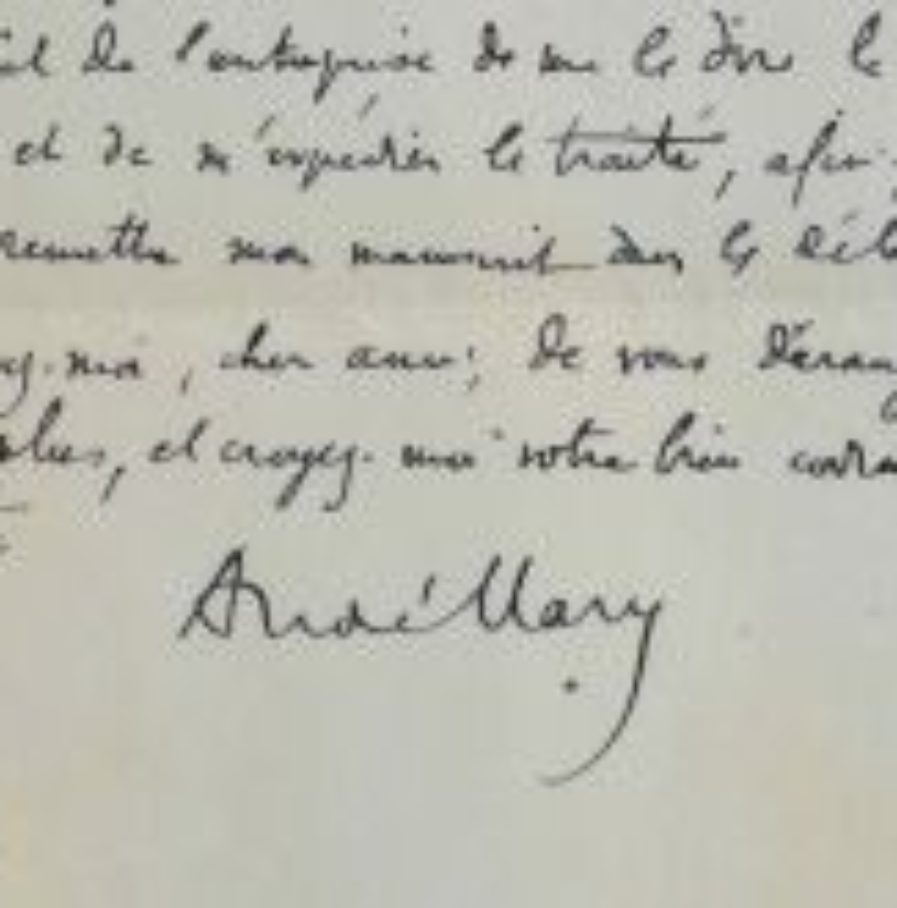 de l'entreprise de me le dire le
et de m'expédier le traité, afin
remettre mon manuscrit dans le
moi, cher ami, de vous
et croyez-moi votre bien
André Mary